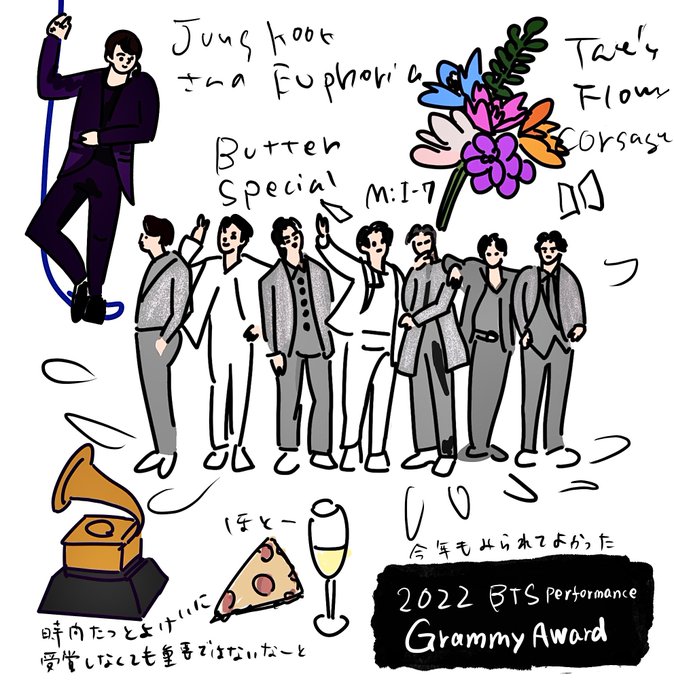 Jung kook
さんの Euphoria
Tae's
Flower
corsage
Butter
special
M:I-7
ほとー
今年もみられてよかった
2022 BTS performance
Grammy Award
時間たつとよけいに
受賞しなくても重要ではないなーと